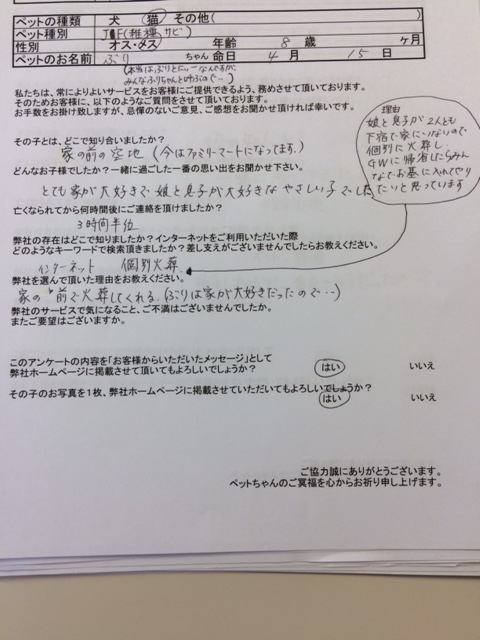 ペットの種類 犬 猫 その他( )
ペット種別 (雑種, サビ)
性別 オス・メス 年齢 8 歳 ヶ月
ペットのお名前 ぷり ちゃん 命日 4 月 15 日
みんなぷりちゃんと呼ぶので…)
私たちは、常によりよいサービスをお客様にご提供できるよう、務めさせて頂いております。
そのためお客様に、以下のようなご質問をさせて頂いております。
お手数をお掛け致しますが、忌憚のないご意見、ご感想をお聞かせ頂ければ幸いです。
その子とは、どこで知り合いましたか?
家の前の空地 (今はファミリーマートになってます。)
どんなお子様でしたか?一緒に過ごした一番の思い出をお聞かせ下さい。
とても家が大好きで娘と息子が大好きなやさしい子でした
亡くなられてから何時間後にご連絡を頂けましたか?
3時間半位
弊社の存在はどこで知りましたか?インターネットをご利用いただいた際
どのようなキーワードで検索頂きましたか?差し支えがございませんでしたらお教えください。
インターネット 個別火葬
弊社を選んで頂いた理由をお教えください。
家の前で火葬してくれる (ぷりは家が大好きだったので…)
弊社のサービスで気になること、ご不満はございませんでしたか。
またご要望はございますか。
理由
娘と息子が2人とも
下宿で家にいないので
個別に火葬し、
GWに帰省したらみん
なでお墓に入れてやり
たいと思っています
このアンケートの内容を「お客様からいただいたメッセージ」として
弊社ホームページに掲載させて頂いてもよろしいでしょうか? はい いいえ
その子のお写真を1枚、弊社ホームページに掲載させていただいてもよろしいでしょうか?
はい いいえ
ご協力誠にありがとうございます。
ペットちゃんのご冥福を心からお祈り申し上げます。